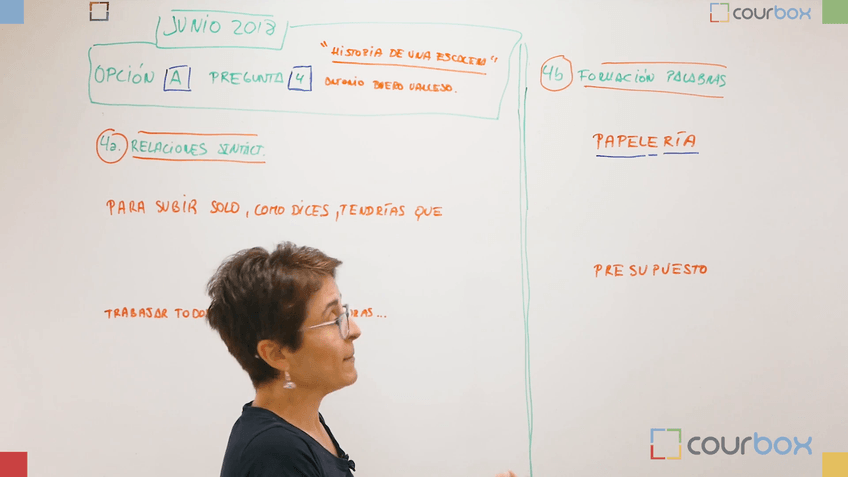 JUNIO 2018
OPCIÓN A PREGUNTA 4
"HISTORIA DE UNA ESCALERA"
ANTONIO BUERO VALLEJO.
4a. RELACIONES SINTÁCT.
PARA SUBIR SOLO, COMO DICES, TENDRÍAS QUE
TRABAJAR TODOS
...
4b FORMACIÓN PALABRAS
PAPELERÍA
PRESUPUESTO
courbox
courbox